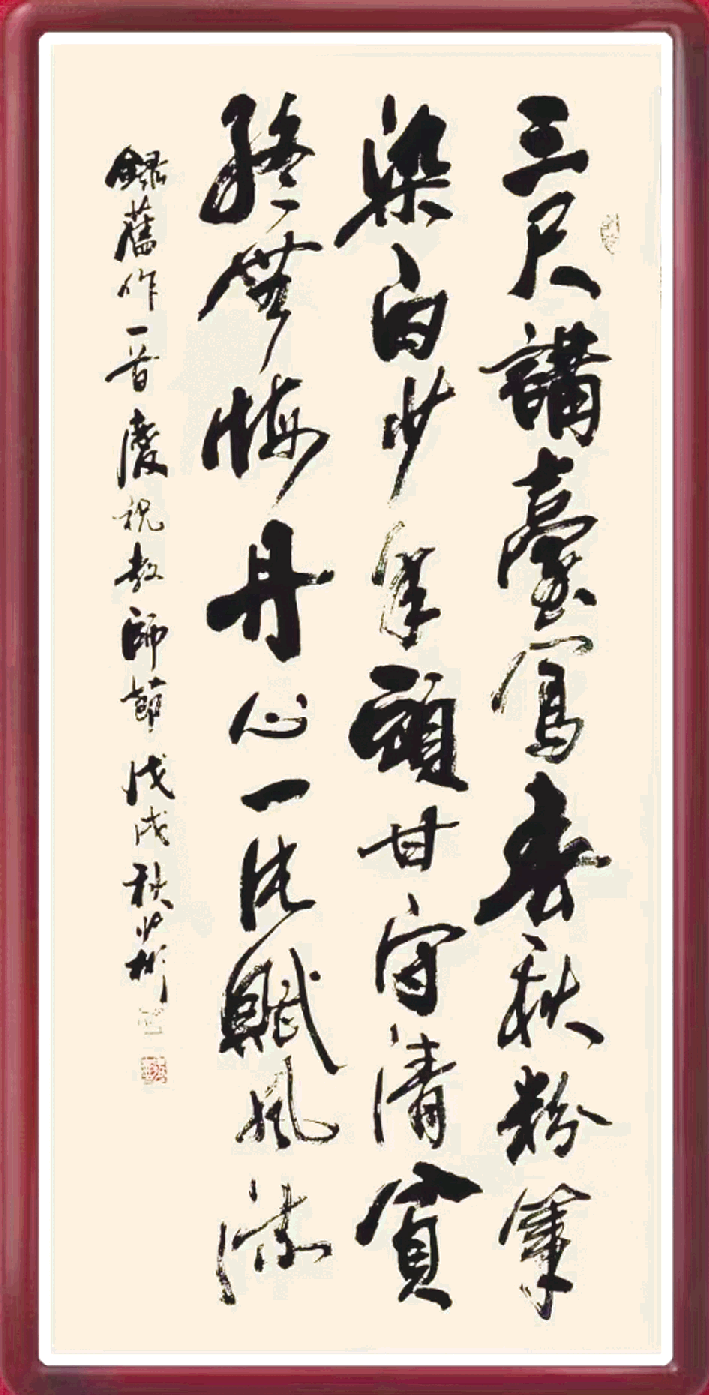 三尺講臺寫春秋粉筆
染白少年頭甘守清貧
終無悔丹心一片賦風流
錄舊作一首慶祝教師節戊戌秋少彬